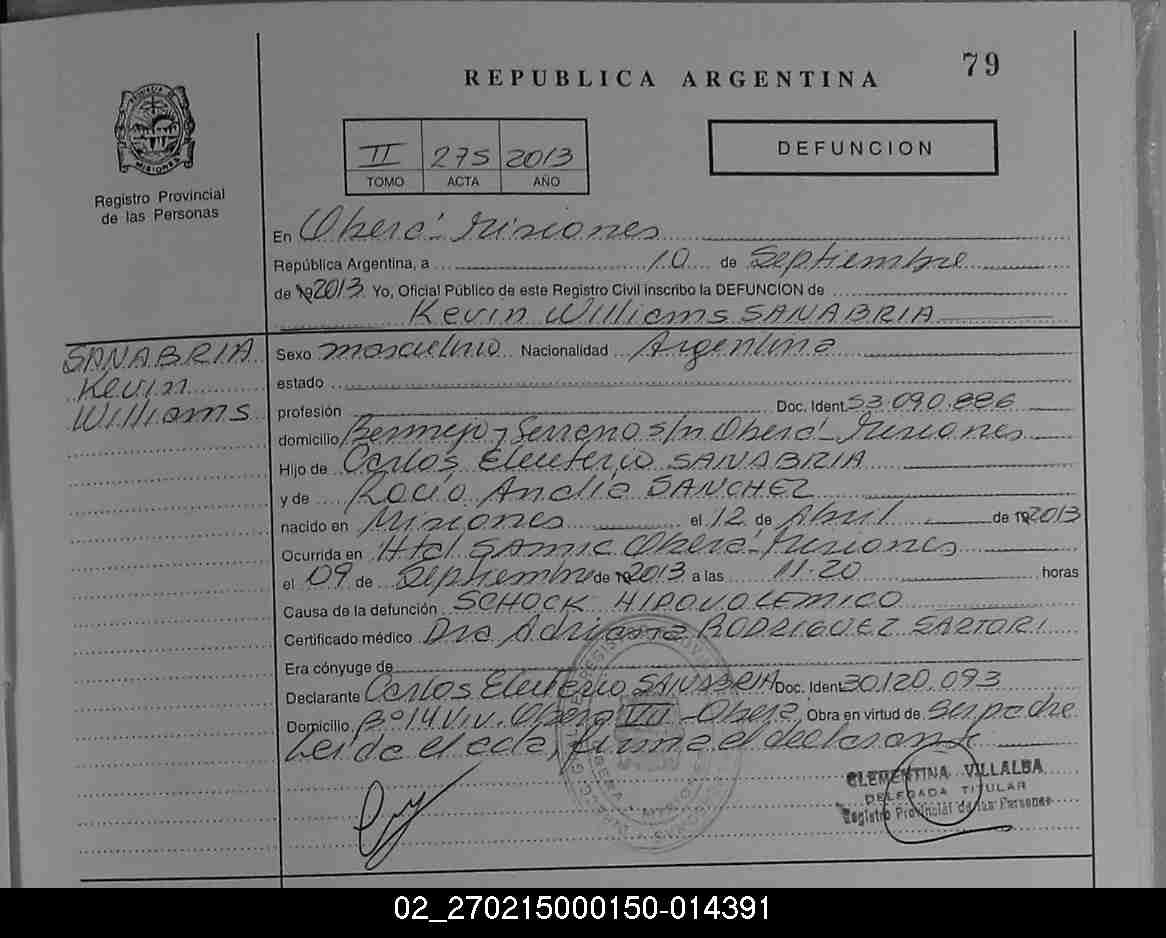 79
REPUBLICA ARGENTINA
MISIONES
Registro Provincial
de las Personas
II 275 2013
TOMO ACTA AÑO
DEFUNCION
En Oberá - Misiones
República Argentina, a 10 de Septiembre
de 19 2013. Yo, Oficial Público de este Registro Civil inscribo la DEFUNCION de
Kevin Williams SANABRIA
SANABRIA
Kevin
Williams
Sexo masculino Nacionalidad Argentina
estado
profesión Doc. Ident. 53.090.886
domicilio Bermejo y Serrano s/n Oberá - Misiones
Hijo de Carlos Eleuterio SANABRIA
y de Rocío Analía SANCHEZ
nacido en Misiones el 12 de Abril de 19 2013
Ocurrida en Htal SAMIC Oberá - Misiones
el 09 de Septiembre de 19 2013 a las 11.20 horas
Causa de la defunción SCHOCK HIPOVOLEMICO
Certificado médico Dra Adriana RODRIGUEZ SARTORI
Era cónyuge de
Declarante Carlos Eleuterio SANABRIA Doc. Ident. 30.120.093
Domicilio Bº 14 Viv. Oberá VII - Oberá, Obra en virtud de ser padre
Leida el acta, firma el declarante
CLEMENTINA VILLALBA
DELEGADA TITULAR
Registro Provincial de las Personas
02_270215000150-014391